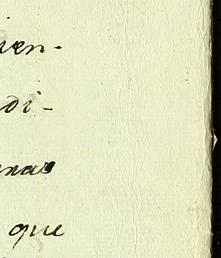 ven-
di-
enas
que